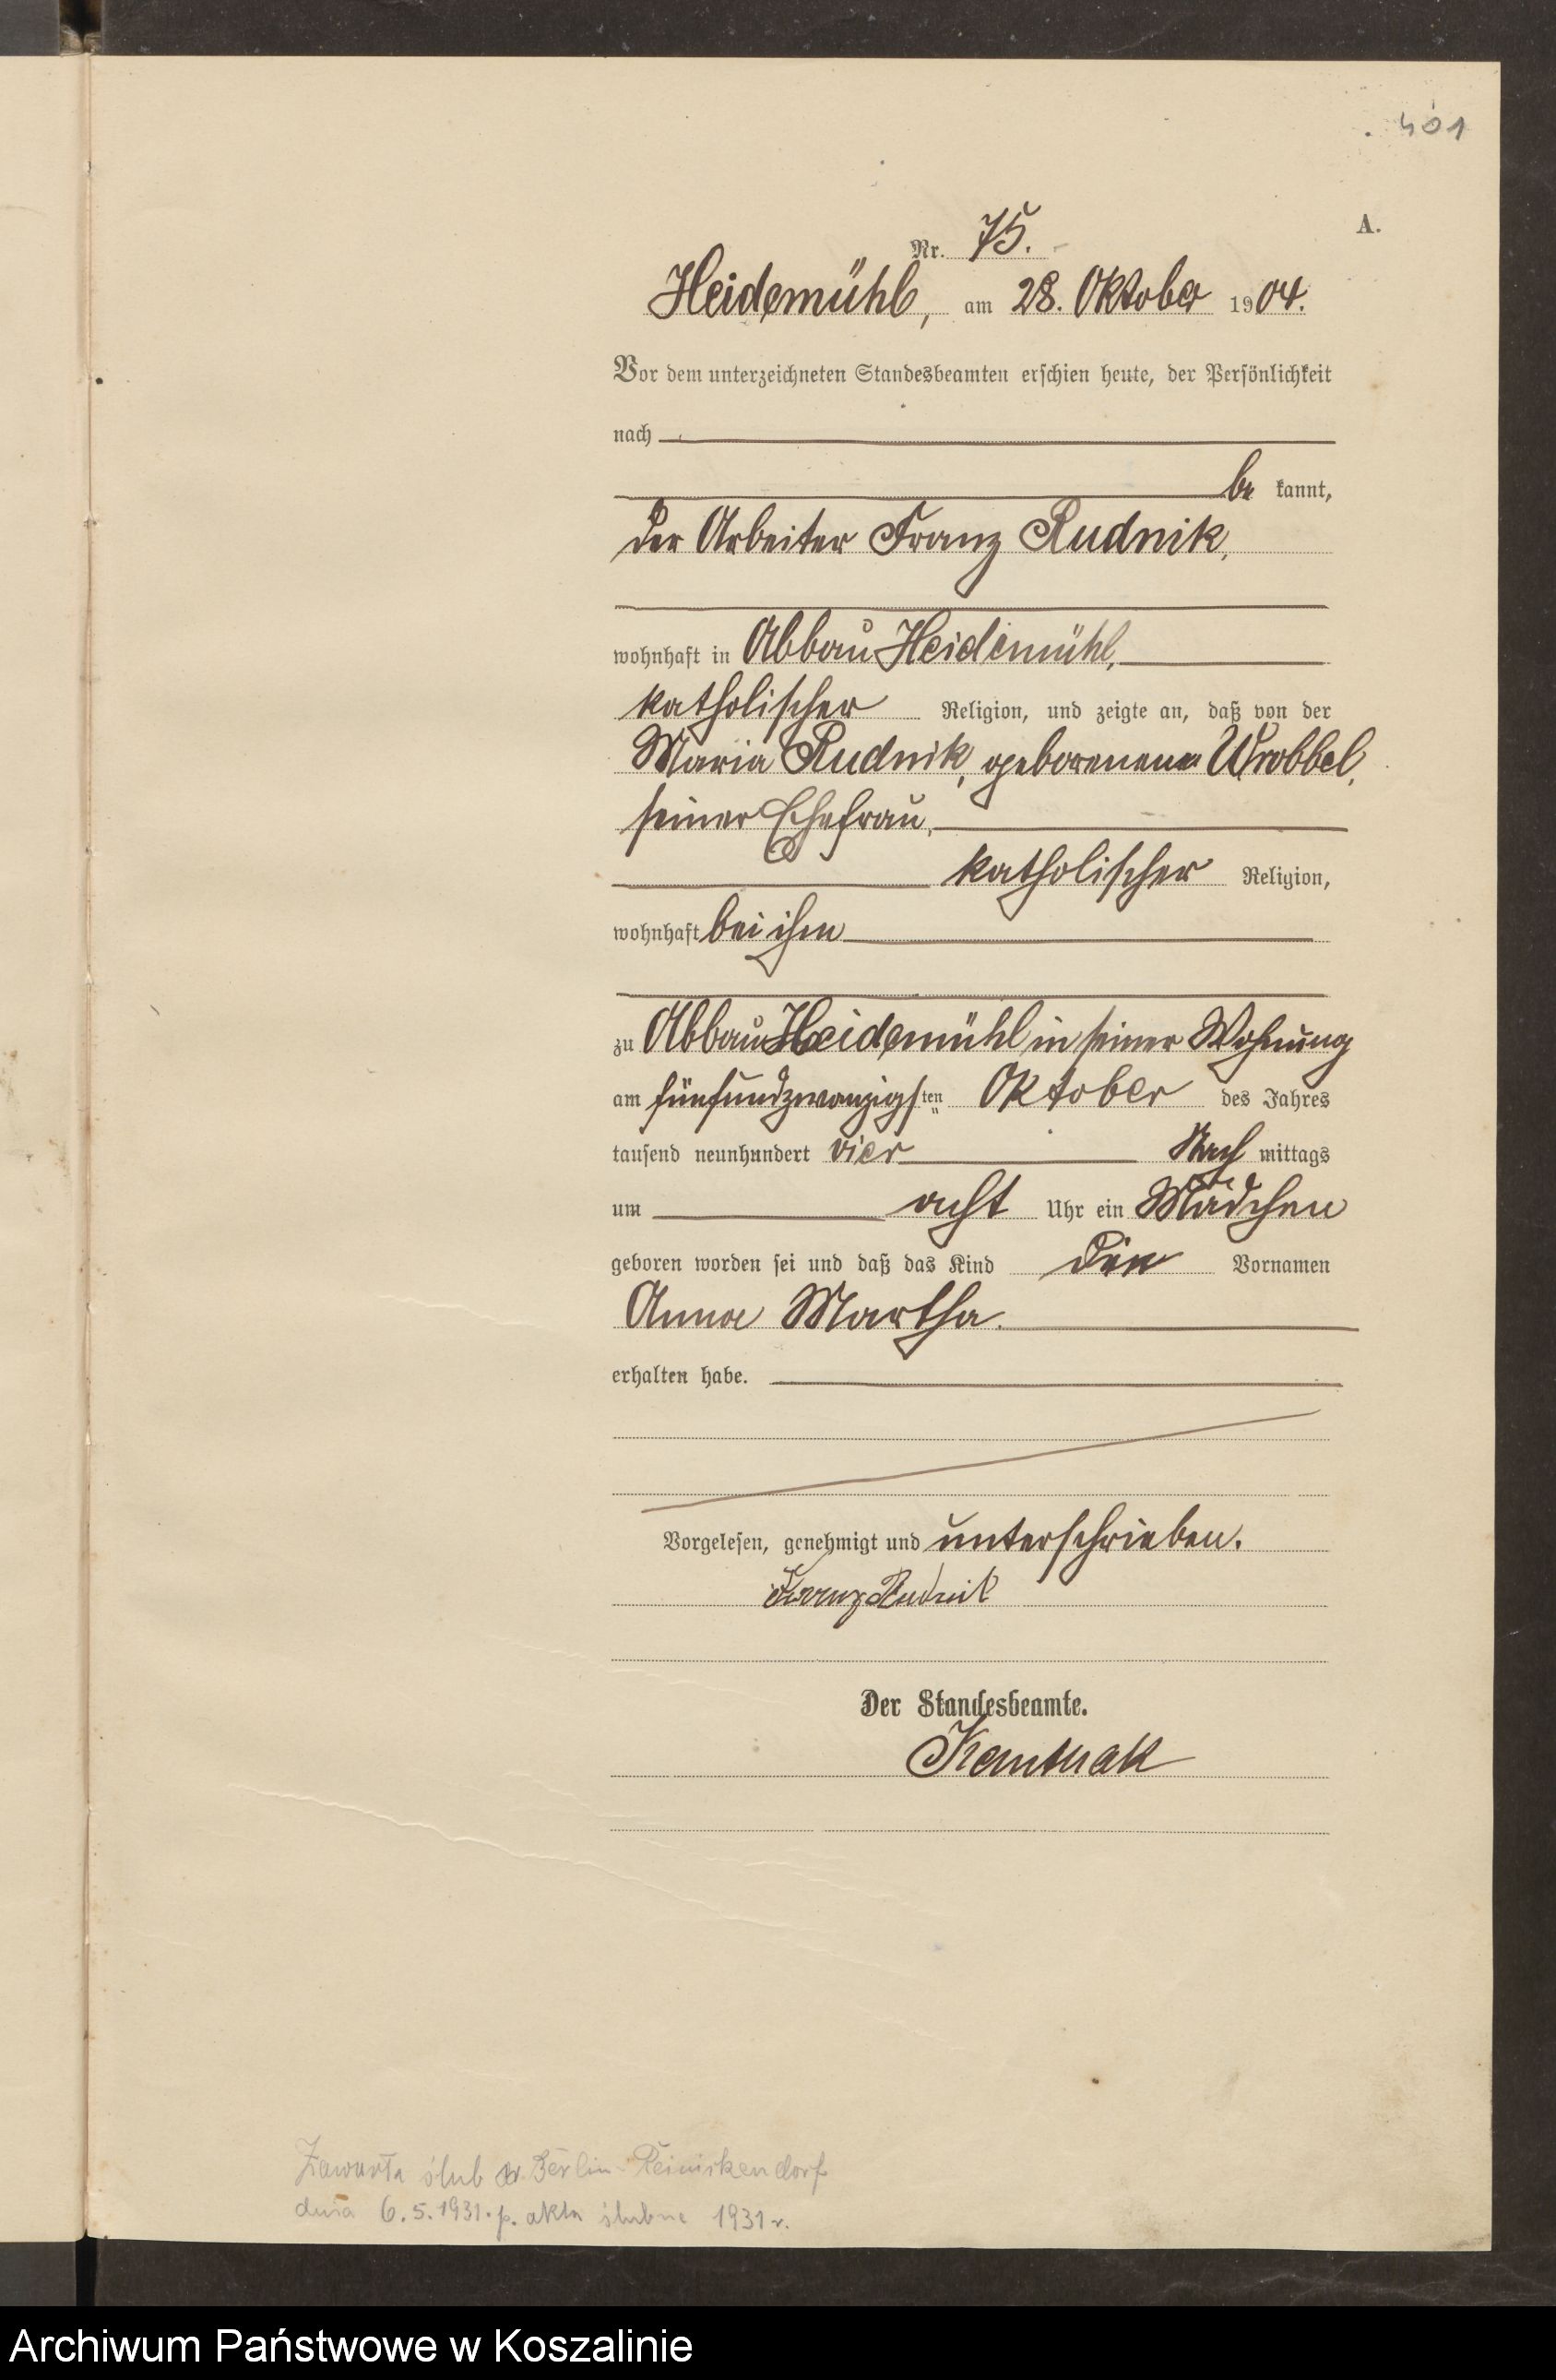 401
A.
Nr. 75.
Heidemühl, am 28. Oktober 1904.
Vor dem unterzeichneten Standesbeamten erschien heute, der Persönlichkeit
nach
be kannt,
der Arbeiter Franz Rudnik,
wohnhaft in Abbau Heidemühl,
katholischer Religion, und zeigte an, daß von der
Maria Rudnik, geborenen Wrobbel,
seiner Ehefrau,
katholischer Religion,
wohnhaft bei ihm
zu Abbau Heidemühl in seiner Wohnung
am fünfundzwanzigsten Oktober des Jahres
tausend neunhundert vier Nach mittags
um acht Uhr ein Mädchen
geboren worden sei und daß das Kind die Vornamen
Anna Martha.
erhalten habe.
Vorgelesen, genehmigt und unterschrieben.
Franz Rudnik
Der Standesbeamte.
Zawarła ślub w Berlin-Reinickendorf
dnia 6.5.1931. p. akta ślubne 1931 r.
Archiwum Państwowe w Koszalinie